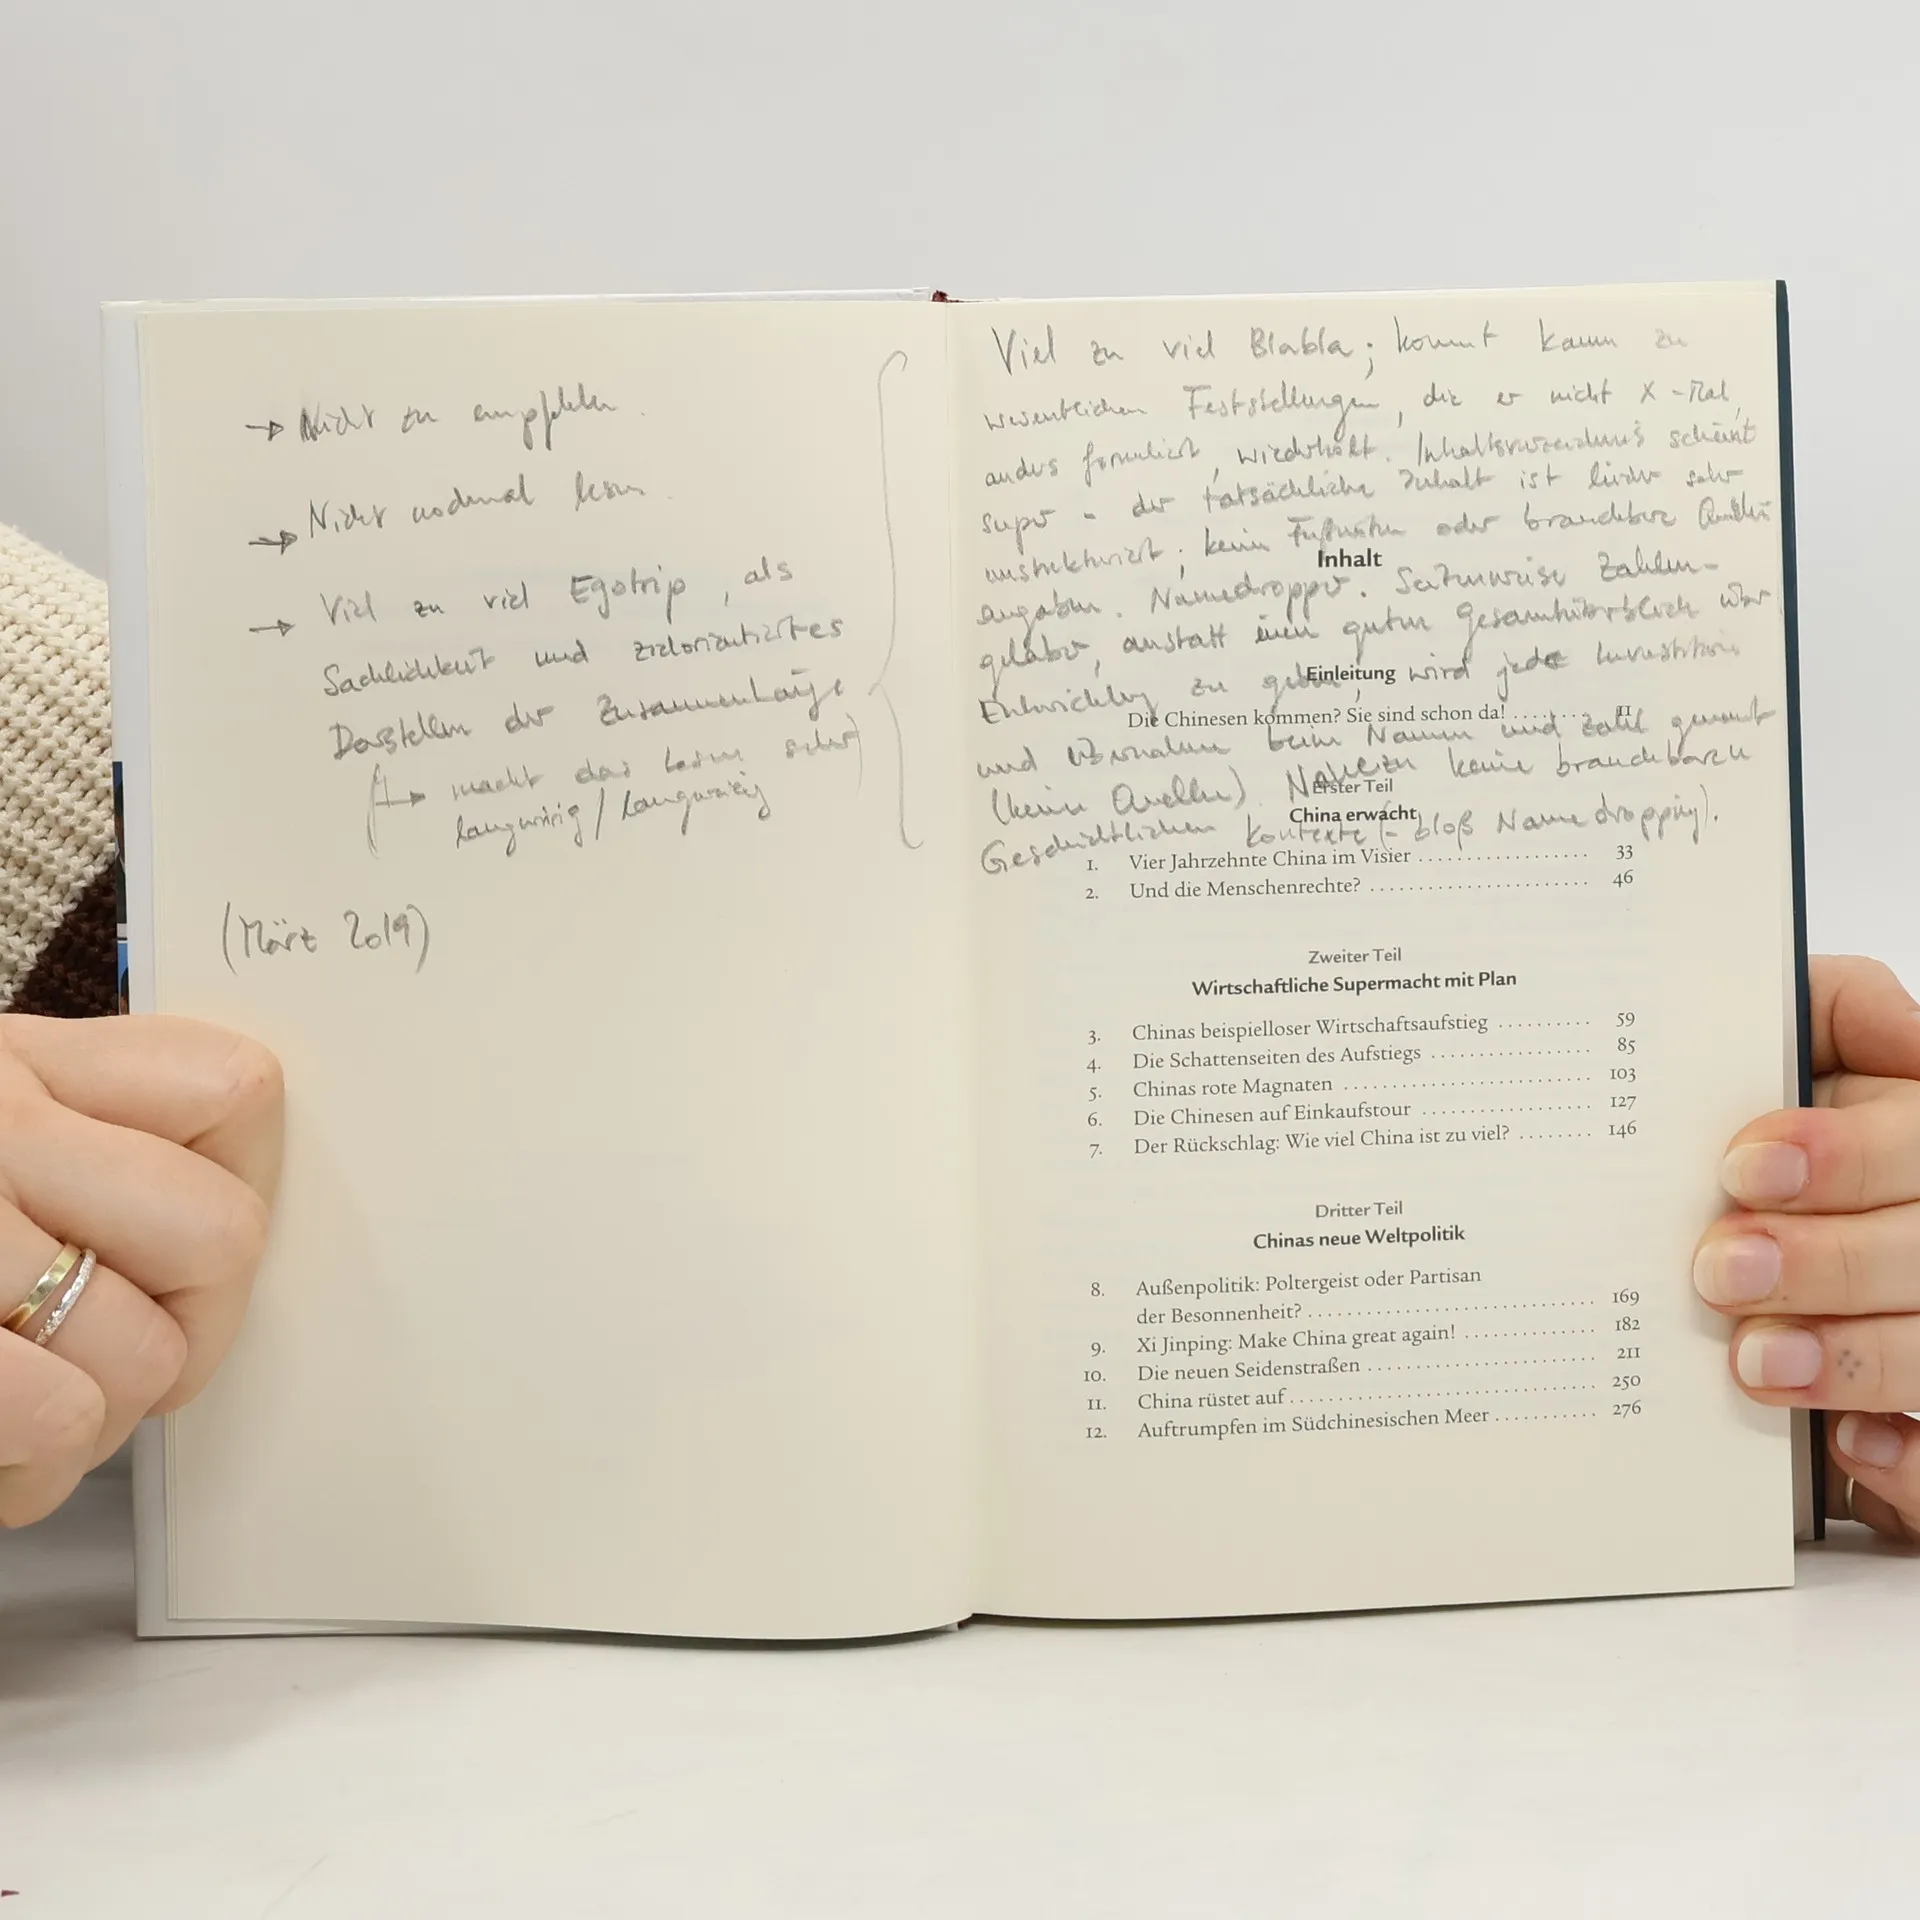 → Nicht zu empfehlen.
→ Nicht nochmal lesen.
→ Viel zu viel Egotrip, als
Sachlichkeit und zielorientiertes
Darstellen der Zusammenhänge
macht das Lesen sehr
langwierig / langweilig
(März 2019)
Viel zu viel Blabla; kommt kaum zu
wesentlichen Feststellungen, die er nicht X-Mal,
anders formuliert, wiederholt. Inhaltsverzeichnis scheint
super - der tatsächliche Inhalt ist leider sehr
unstrukturiert; keine Fußnoten oder brauchbare Quellen
angaben. Namedropper. Seitenweise Zahlen-
gelaber, anstatt einen guten Gesamtüberblick über
Entwicklung zu geben, wird jede Investition
und Übernahme beim Namen und Zahl genannt
(keine Quellen). Nahezu keine brauchbaren
Geschichtlichen Kontexte (- bloß Namedropping).
Inhalt
Einleitung
Die Chinesen kommen? Sie sind schon da! ........ 11
Erster Teil
China erwacht
1. Vier Jahrzehnte China im Visier .................. 33
2. Und die Menschenrechte? ....................... 46
Zweiter Teil
Wirtschaftliche Supermacht mit Plan
3. Chinas beispielloser Wirtschaftsaufstieg .......... 59
4. Die Schattenseiten des Aufstiegs ................. 85
5. Chinas rote Magnaten .......................... 103
6. Die Chinesen auf Einkaufstour .................. 127
7. Der Rückschlag: Wie viel China ist zu viel? ........ 146
Dritter Teil
Chinas neue Weltpolitik
8. Außenpolitik: Poltergeist oder Partisan
der Besonnenheit? ............................. 169
9. Xi Jinping: Make China great again! .............. 182
10. Die neuen Seidenstraßen ........................ 211
11. China rüstet auf ............................... 250
12. Auftrumpfen im Südchinesischen Meer ........... 276